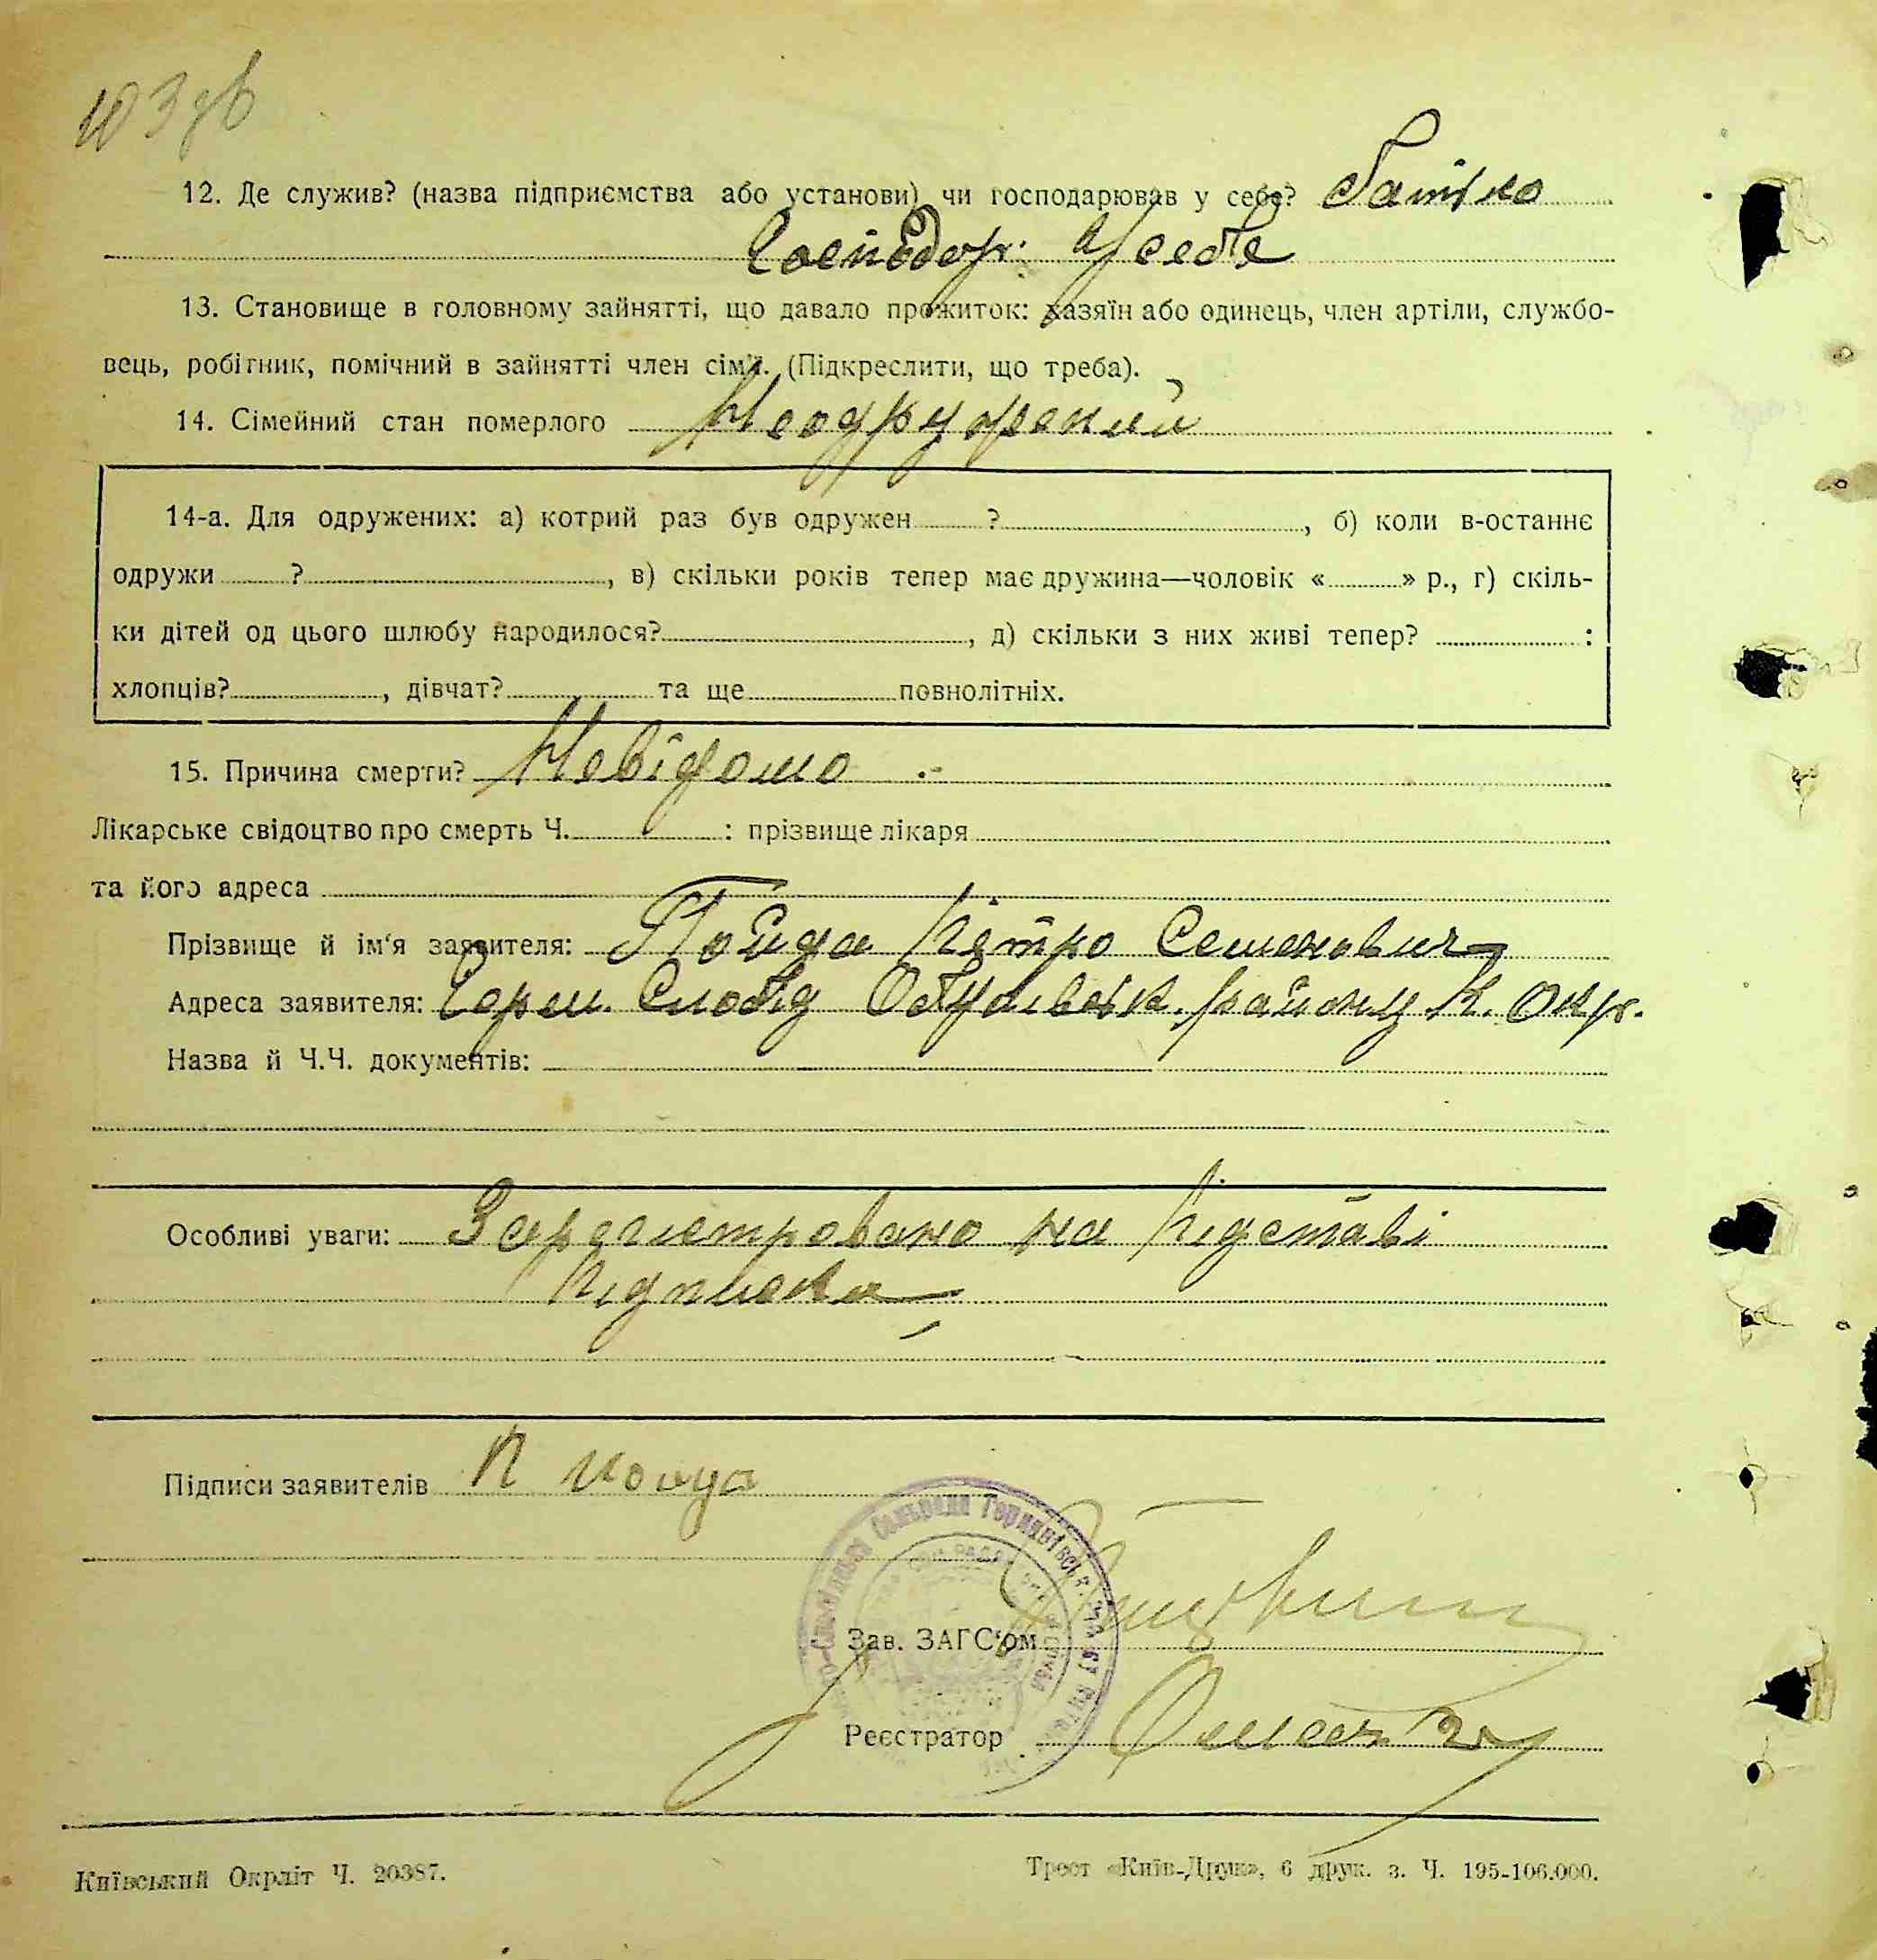 103 зв
12. Де служив? (назва підприємства або установи) чи господарював у себе? Батько
Господар. у себе
13. Становище в головному зайнятті, що давало прожиток: хазяїн або одинець, член артіли, службо-
вець, робітник, помічний в зайнятті член сім'ї. (Підкреслити, що треба).
14. Сімейний стан померлого Неодружений
14-а. Для одружених: а) котрий раз був одружен ? , б) коли в-останнє
одружи ? , в) скільки років тепер має дружина—чоловік « » р., г) скіль-
ки дітей од цього шлюбу народилося? , д) скільки з них живі тепер? :
хлопців? , дівчат? та ще повнолітніх.
15. Причина смерти? Невідомо
Лікарське свідоцтво про смерть Ч. : прізвище лікаря
та його адреса
Прізвище й ім'я заявителя: Пойда Петро Семенович
Адреса заявителя: Герм. Слобід Обухівськ. району К. Окр.
Назва й Ч.Ч. документів:
Особливі уваги: Зарегистровано на підставі
підписки
Підписи заявителів П Пойда
Зав. ЗАГС'ом
Реєстратор
Київський Окрліт Ч. 20387.
Трест «Київ-Друк», 6 друк. з. Ч. 195-106.000.